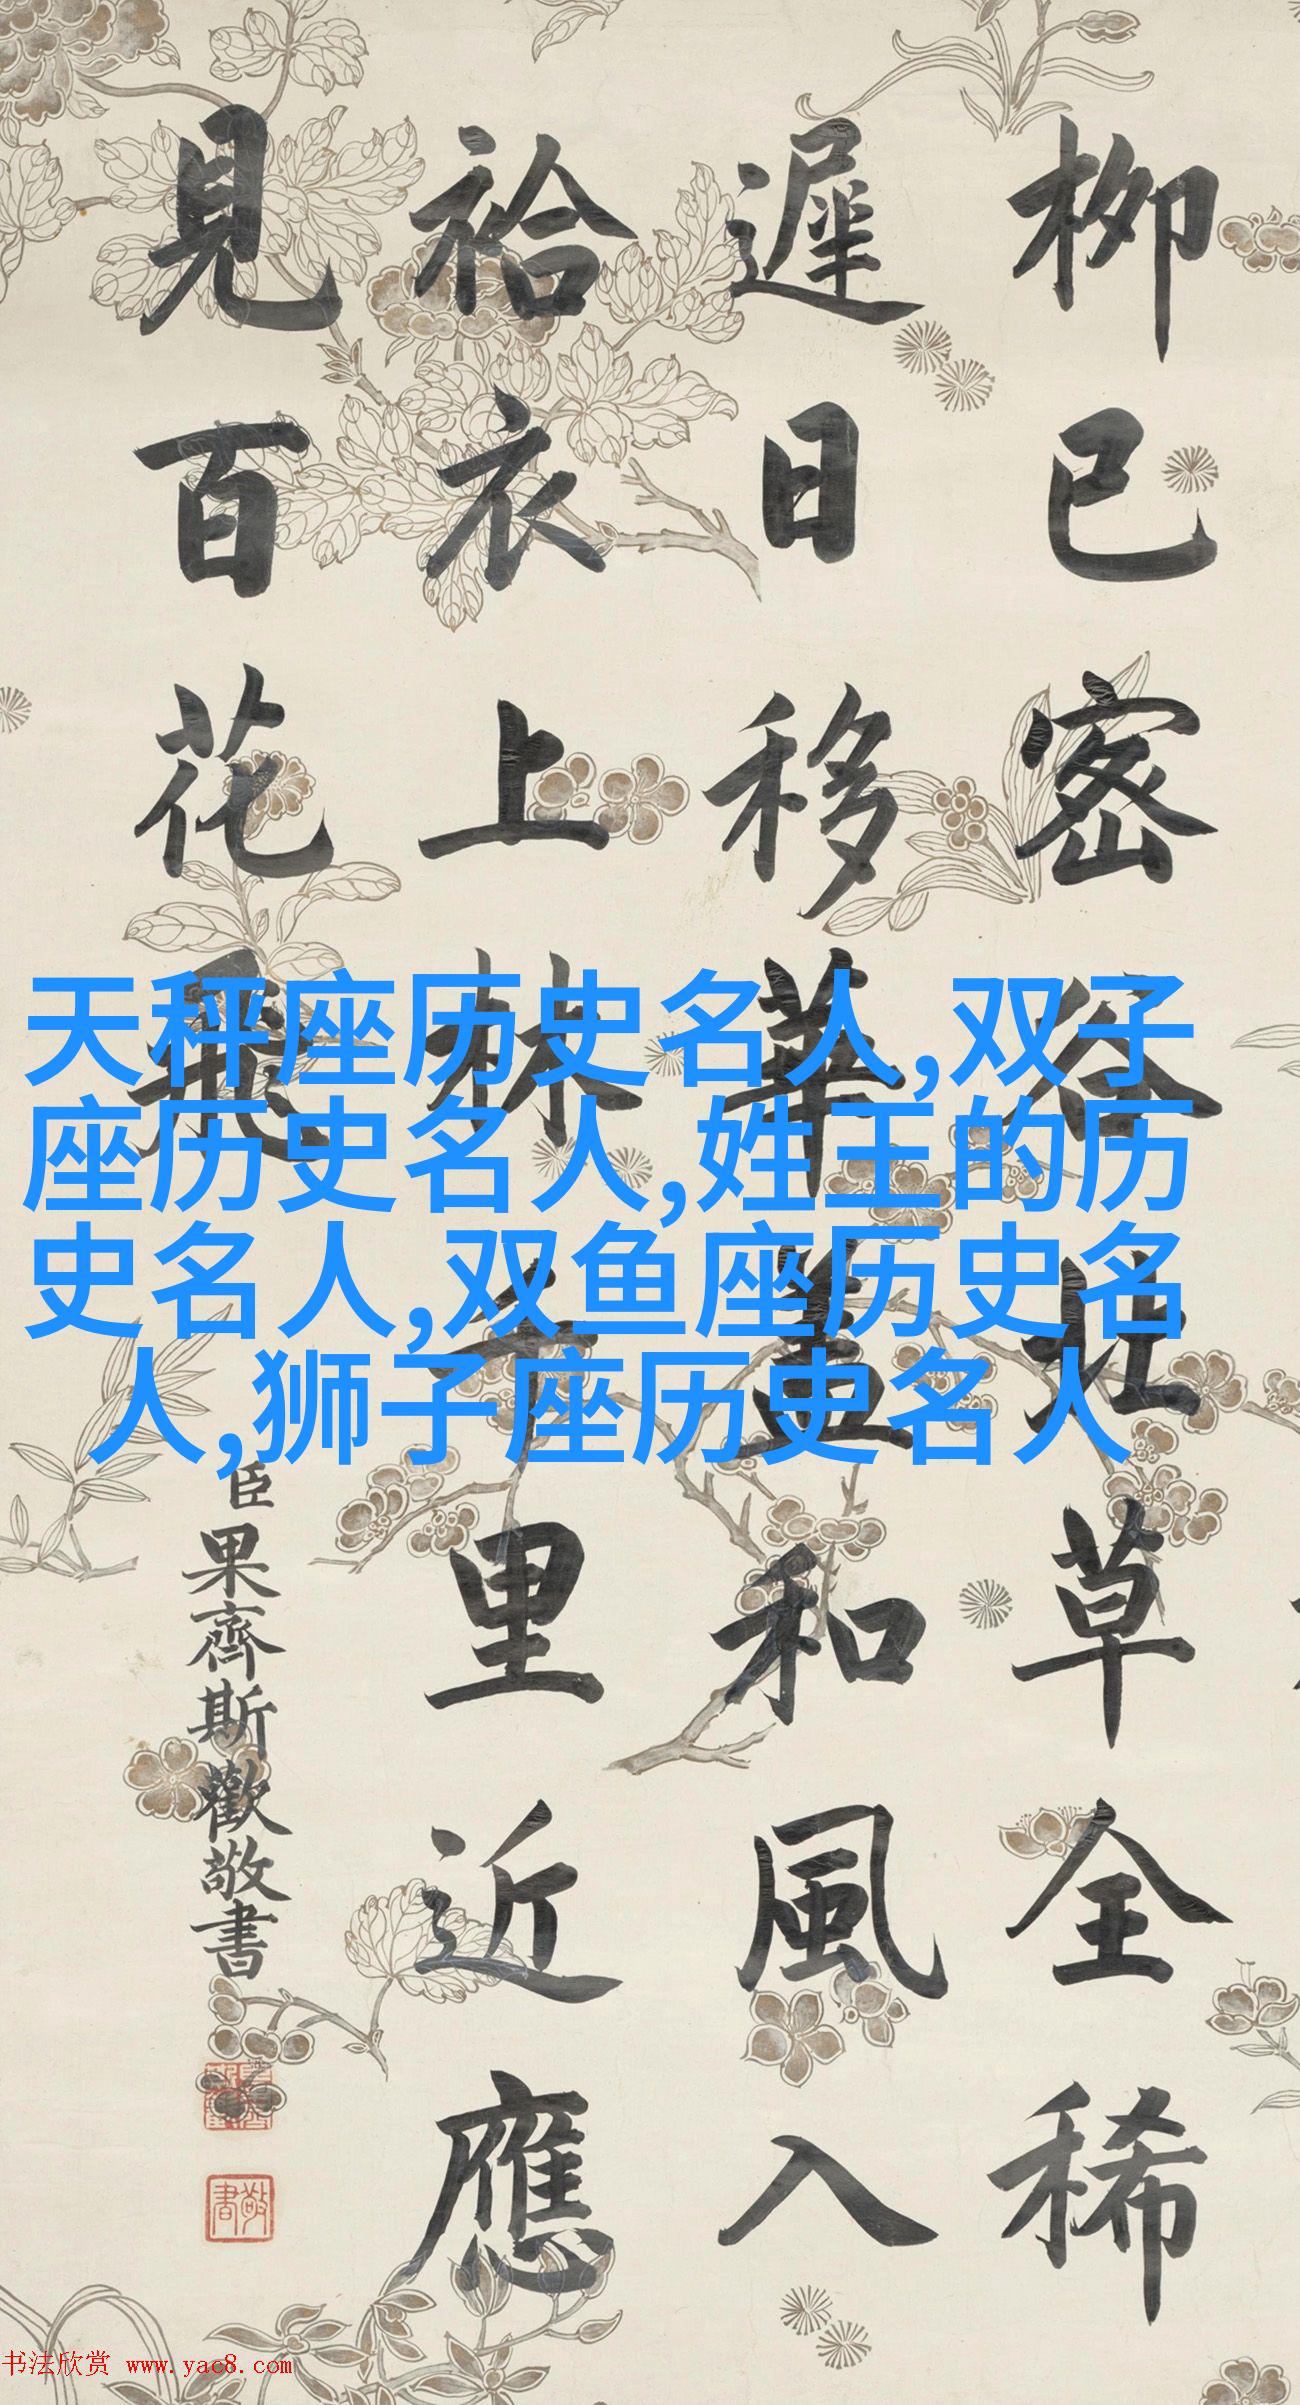 栁已密草全稀
遲日移華蓋和風入
袷衣上林千里近應
見百花飛
臣果齊斯歡敬書
敬書
天秤座历史名人,双子
座历史名人,姓王的历
史名人,双鱼座历史名
人,狮子座历史名人
书法欣赏 www.yac8.com